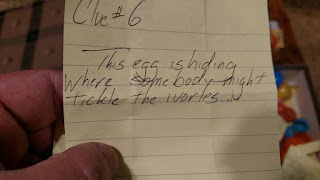 Clue #6
This egg is hiding
where somebody might
tickle the ivories...